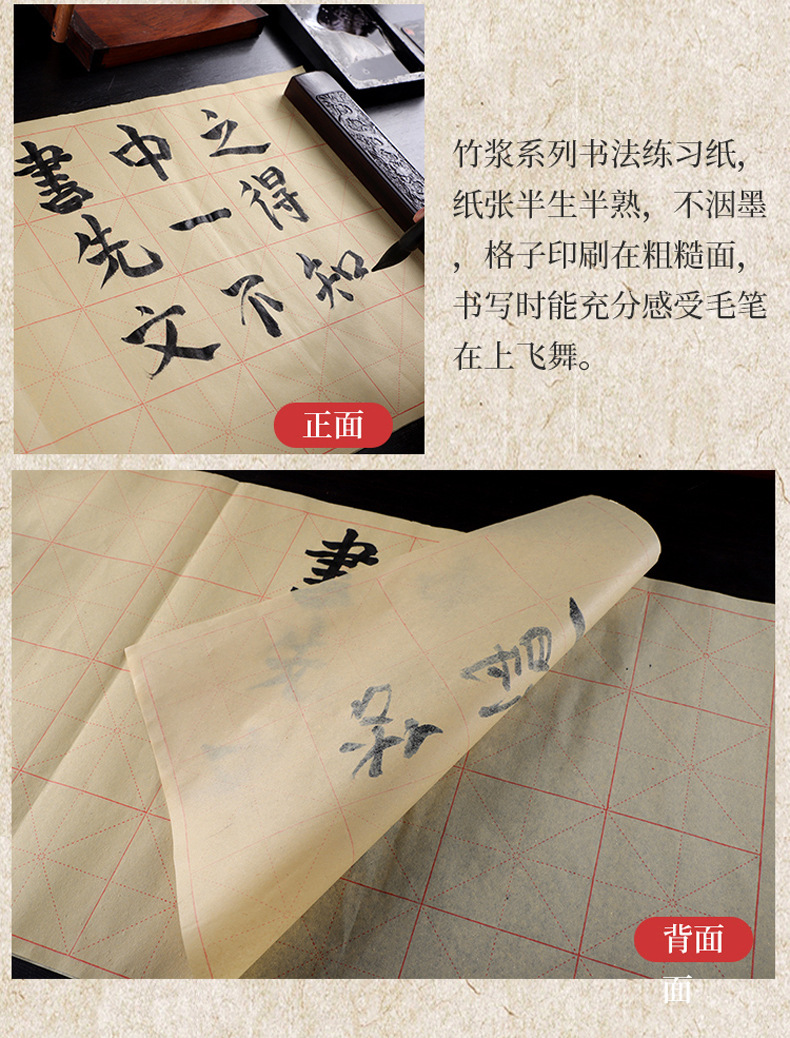 書中之
先一得
文不知
正面
竹浆系列书法练习纸，
纸张半生半熟，不洇墨
，格子印刷在粗糙面，
书写时能充分感受毛笔
在上飞舞。
書
背面
面